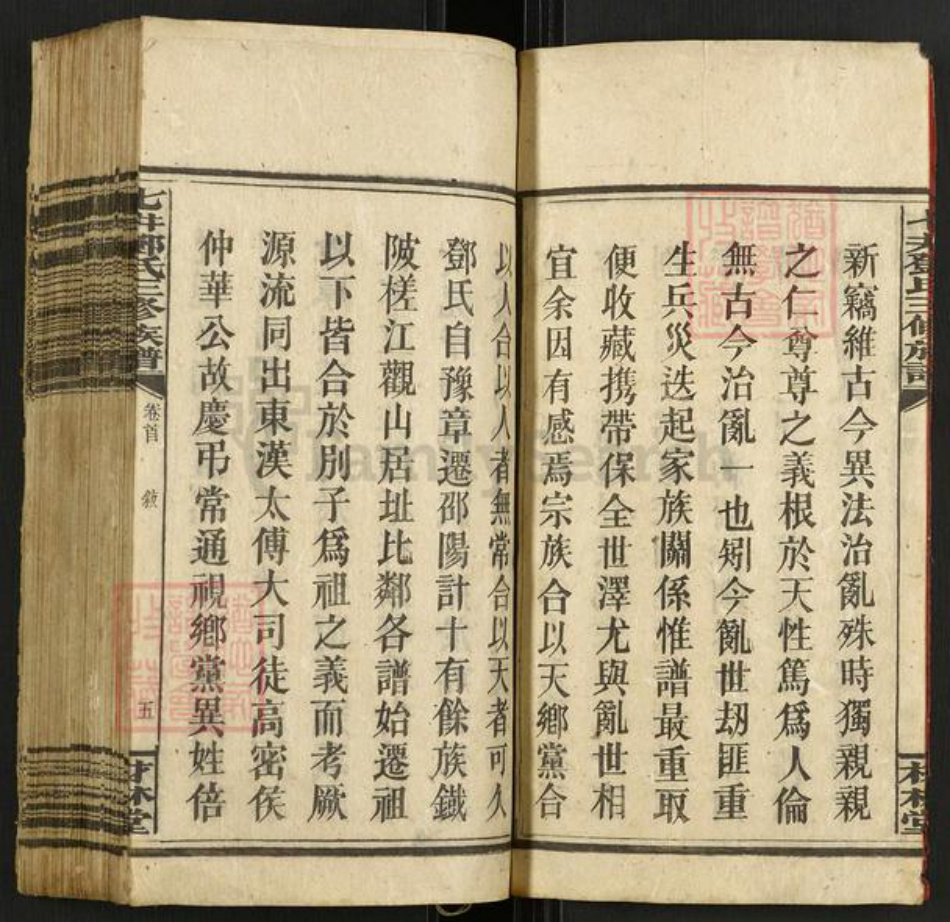 新竊維古今異法治亂殊時獨親親
之仁尊尊之義根於天性篤爲人倫
無古今治亂一也矧今亂世刼匪重
生兵災迭起家族關係惟譜最重取
便收藏携帶保全世澤尤與亂世相
宜余因有感焉宗族合以天鄉黨合
以人合以人者無常合以天者可久
鄧氏自豫章遷邵陽計十有餘族鐵
陂槎江觀山居址比鄰各譜始遷祖
以下皆合於別子爲祖之義而考厥
源流同出東漢太傅大司徒高密侯
仲華公故慶弔常通視鄉黨異姓倍
七井鄧氏三修族譜
卷首
敘
五